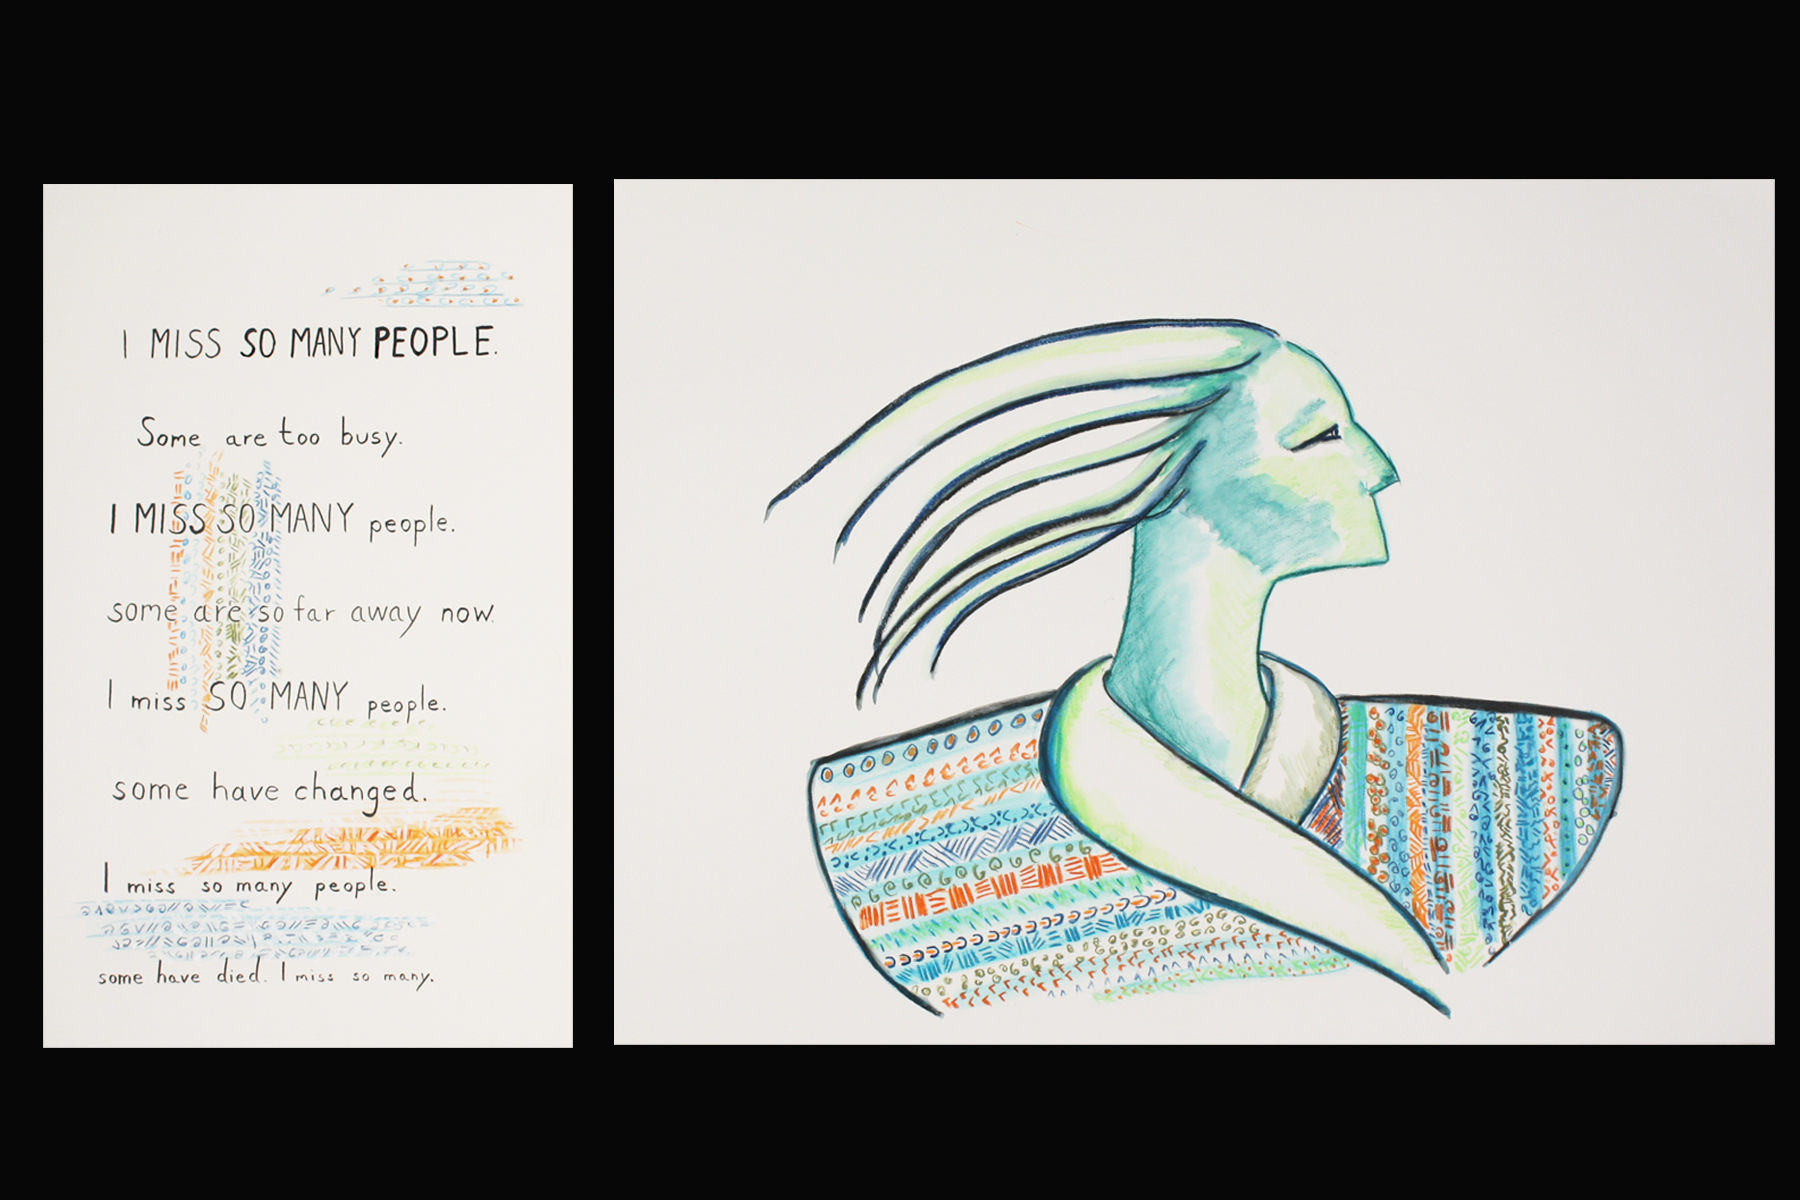 I MISS SO MANY PEOPLE.
Some are too busy.
I MISS SO MANY people.
some are so far away now.
I miss SO MANY people.
some have changed.
I miss so many people.
some have died. I miss so many.